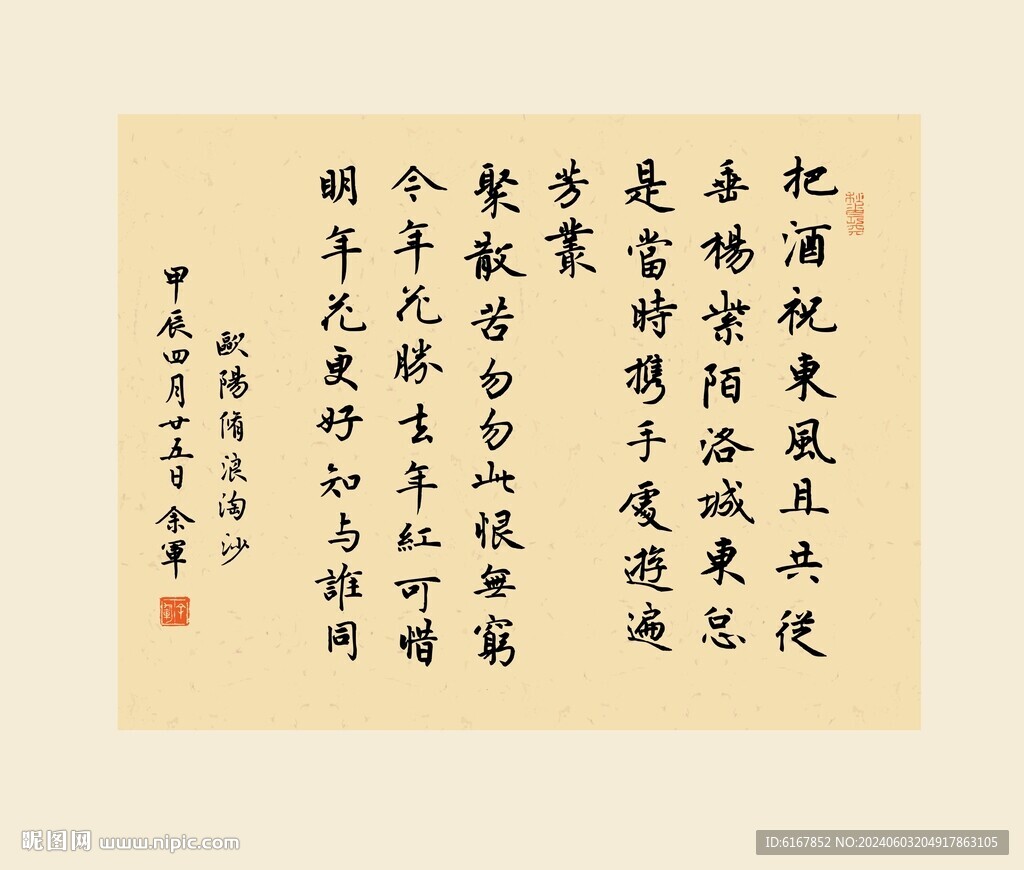 把酒祝東風且共從
垂楊紫陌洛城東总
是當時携手處遊遍
芳叢
聚散苦匆匆此恨無窮
今年花勝去年紅可惜
明年花更好知与誰同
歐陽脩浪淘沙
甲辰四月廿五日 余軍
昵图网 www.nipic.com
ID:6167852 NO:20240603204917863105